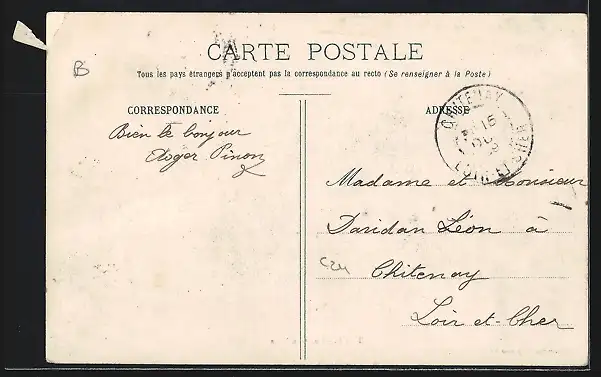 CARTE POSTALE
Tous les pays étrangers n'acceptent pas la correspondance au recto (Se renseigner à la Poste)
B
CORRESPONDANCE
ADRESSE
CHITENAY
16
LOIR-ET-CHER
Bien le bonjour
Roger Pinon
Madame et Monsieur
Daridan Léon à
Chitenay
Loir et Cher